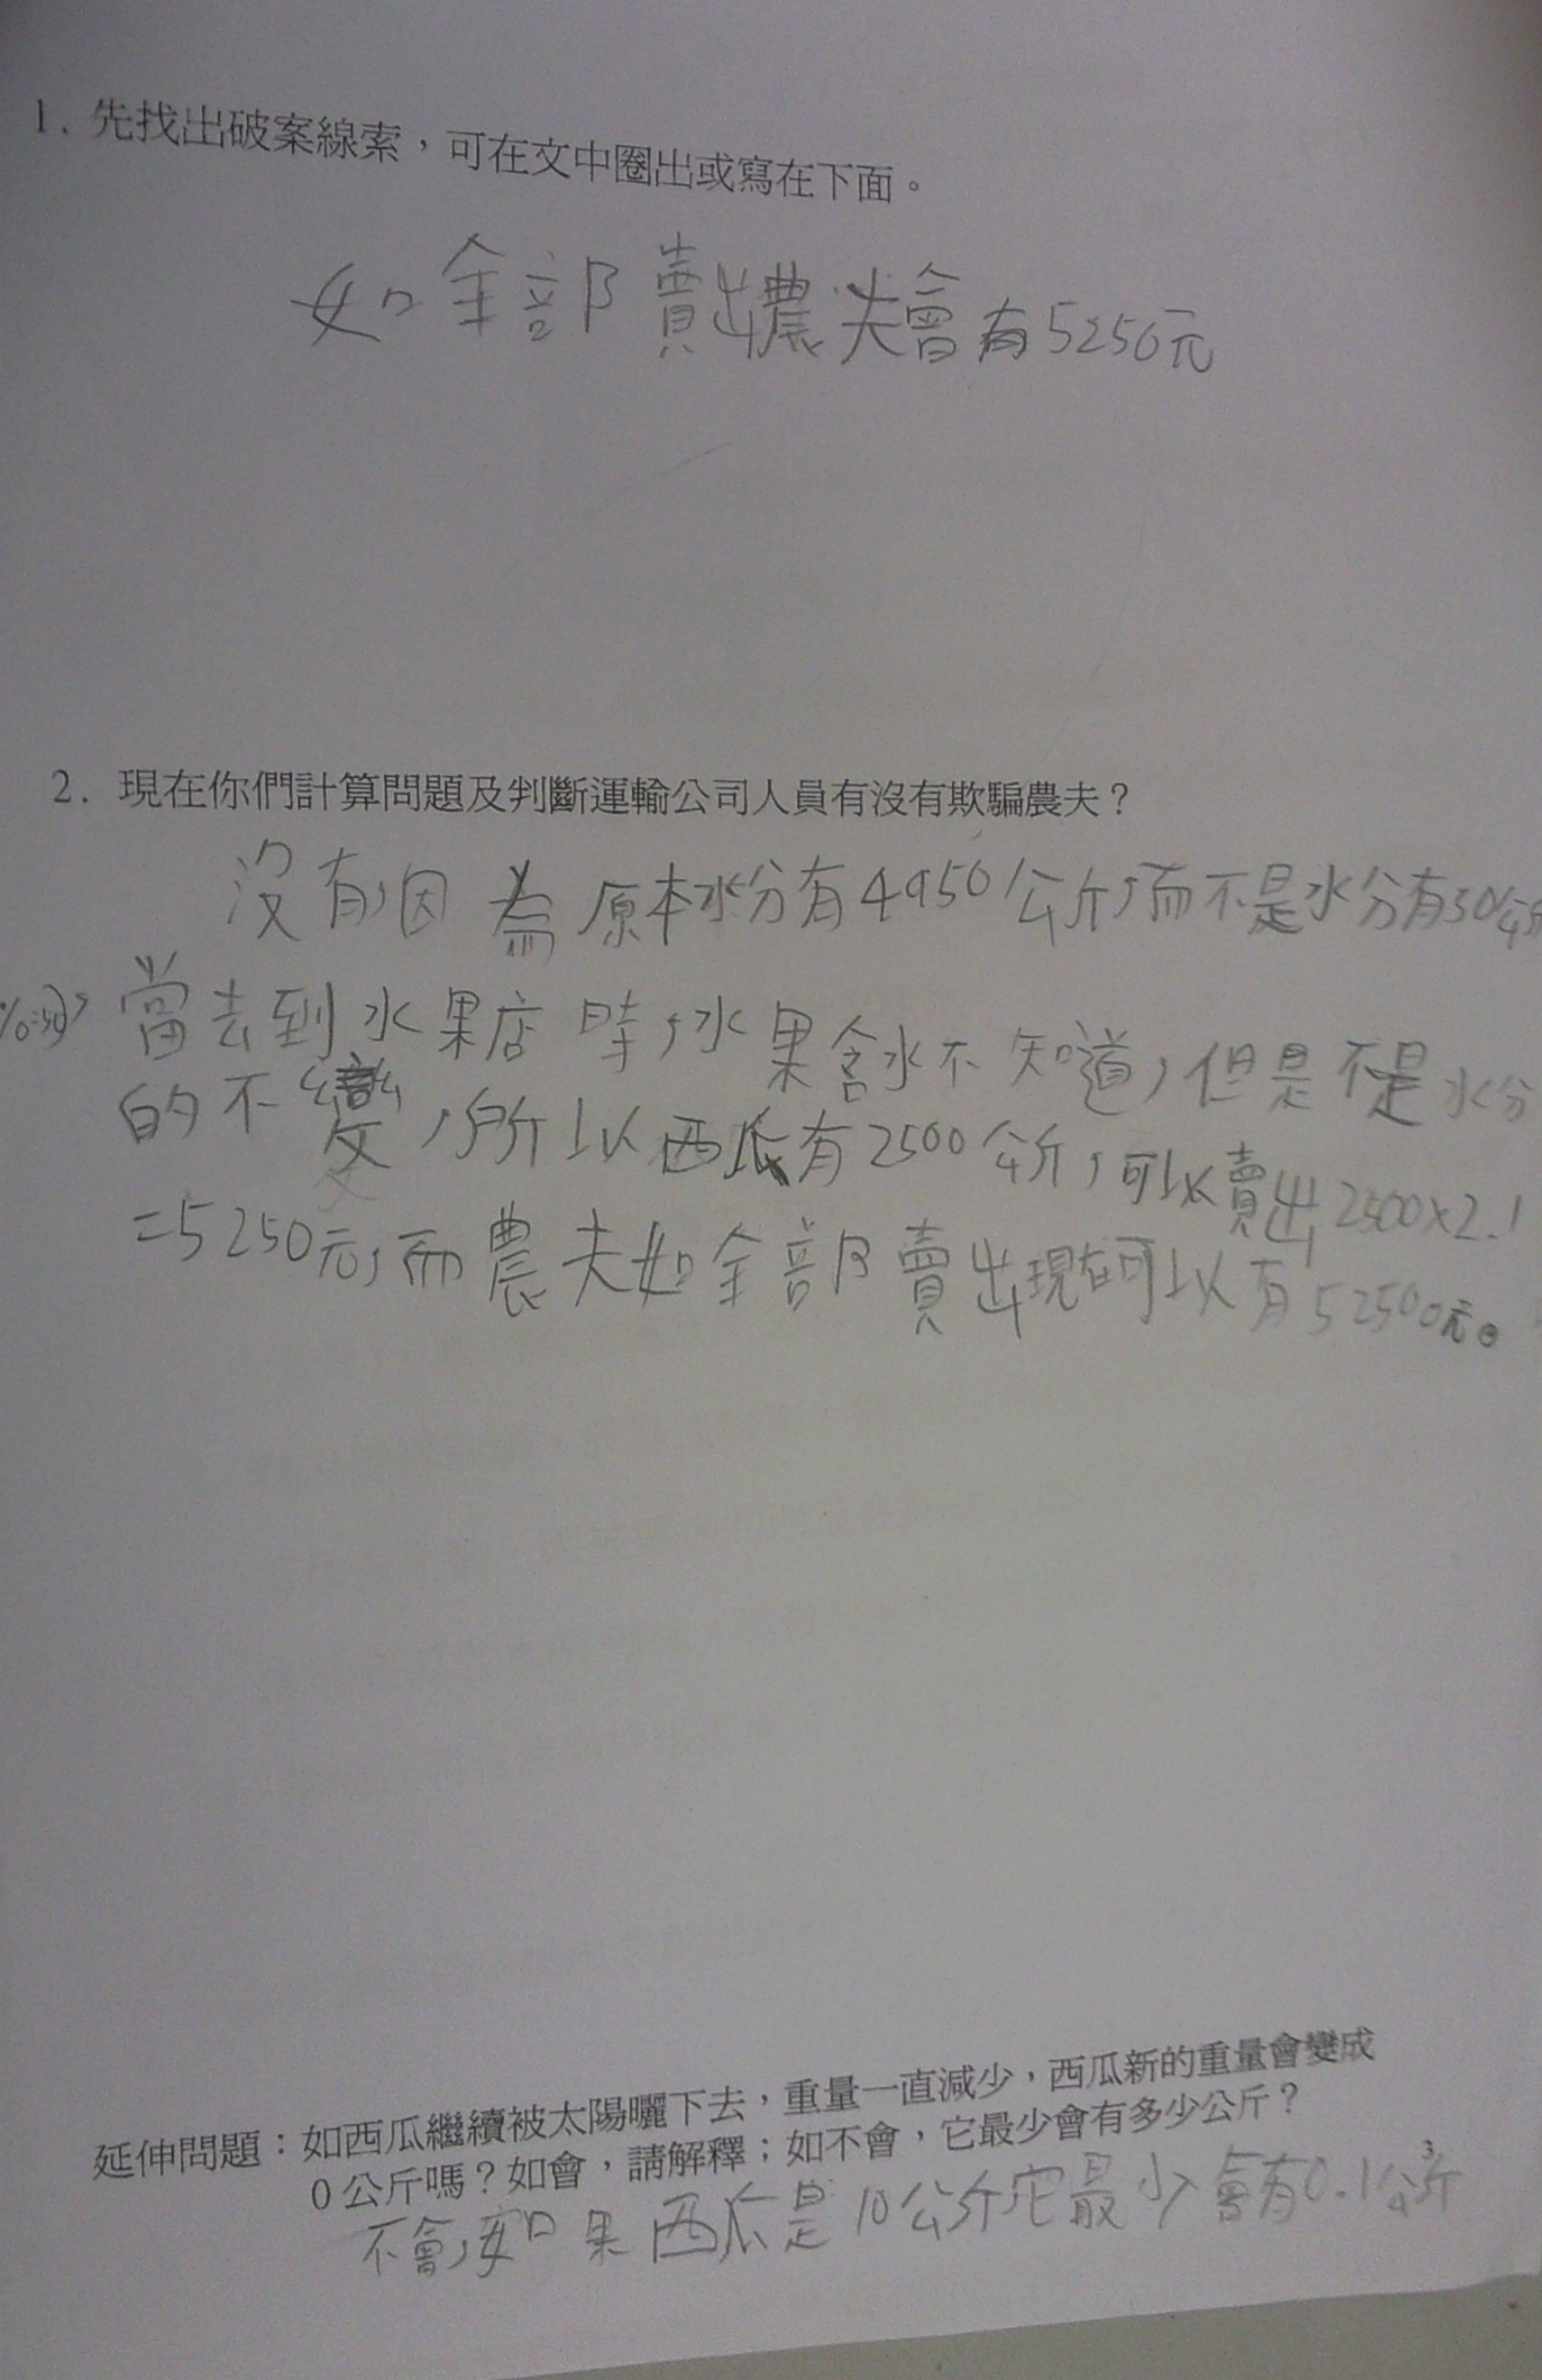 1. 先找出破案線索，可在文中圈出或寫在下面。
如全部賣出農夫會有5250元
2. 現在你們計算問題及判斷運輸公司人員有沒有欺騙農夫？
沒有，因為原本水分有4950公斤，而不是水分有50公斤
當去到水果店時，水果含水不知道，但是不是水分
的不變，所以西瓜有2500公斤，可以賣出2500×2.1
=5250元，而農夫如全部賣出現在可以有5250元。
延伸問題：如西瓜繼續被太陽曬下去，重量一直減少，西瓜新的重量會變成
0公斤嗎？如會，請解釋；如不會，它最少會有多少公斤？
不會，如果西瓜是10公斤它最少會有0.1公斤